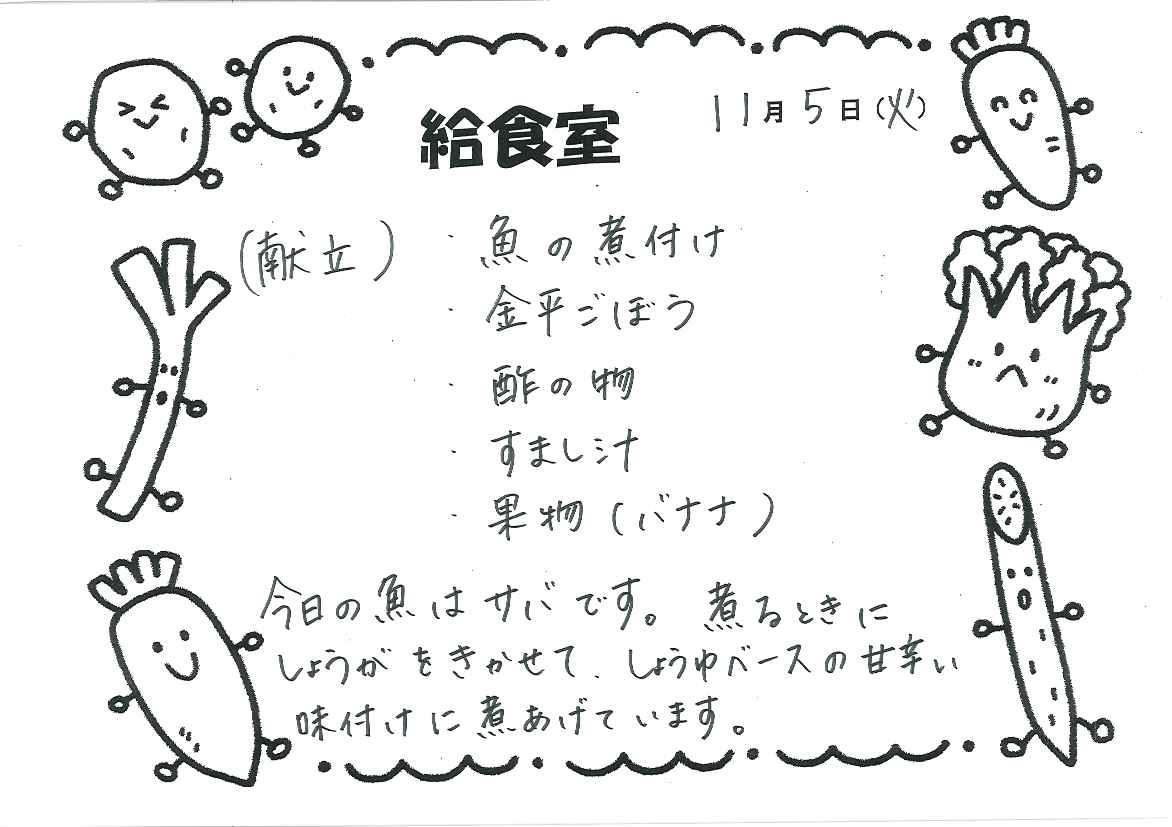 給食室
11月5日(火)
(献立)
・魚の煮付け
・金平ごぼう
・酢の物
・すまし汁
・果物(バナナ)
今日の魚はサバです。煮るときに
しょうがをきかせて、しょうゆベースの甘辛い
味付けに煮あげています。